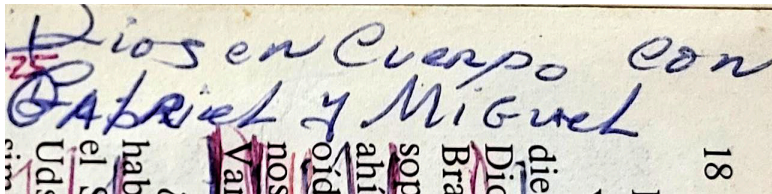 Dios en Cuerpo con
25
GAbRiel y MiGuel
18
die
Dic
Bra
sop
ahí
oíd
nos
Var
hab
el S
Uds
sin